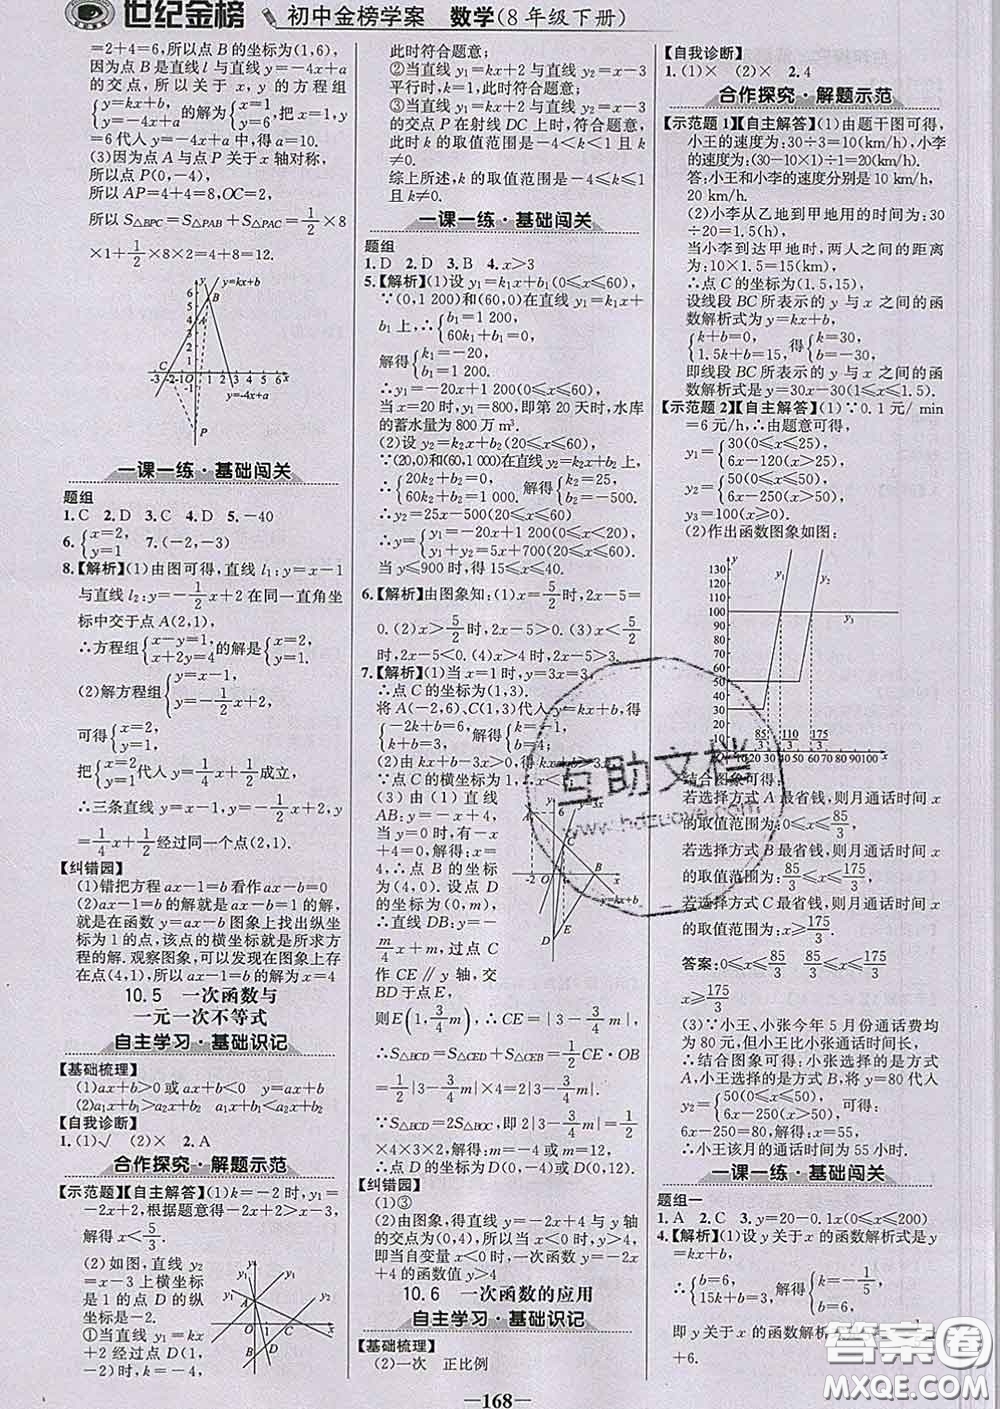 世纪金榜 初中金榜学案 数学(8年级下册)
=2+4=6,所以点B的坐标为(1,6),
因为点B是直线l与直线y=-4x+a
的交点,所以关于x,y的方程组
{y=kx+b, y=-4x+a 的解为 {x=1, y=6, 把x=1,
y=6代入y=-4x+a中,得a=10.
(3)因为点A与点P关于x轴对称,
所以点P(0,-4),
所以AP=4+4=8,OC=2,
所以S△BPC=S△PAB+S△PAC=1/2×8
×1+1/2×8×2=4+8=12.
一课一练·基础闯关
题组
1.C 2.D 3.C 4.D 5.-40
6.{x=2, y=1 7.(-2,-3)
8.【解析】(1)由图可得,直线l1:y=x-1
与直线l2:y=-1/2x+2在同一直角坐
标中交于点A(2,1),
∴方程组{x-y=1, x+2y=4的解是{x=2, y=1.
(2)解方程组{y=x-1, y=-1/2x+2,
可得{x=2, y=1,
把{x=2, y=1代入y=1/4x+1/2成立,
∴三条直线y=x-1,y=-1/2x+2,y
=1/4x+1/2经过同一个点(2,1).
【纠错园】
(1)错把方程ax-1=b看作ax-b=0
(2)ax-1=b的解就是ax-b=1的解,
就是在函数y=ax-b图象上找出纵坐
标为1的点,该点的横坐标就是所求方
程的解.观察图象,可以发现在图象上存
在点(4,1),所以ax-1=b的解为x=4
10.5 一次函数与
一元一次不等式
自主学习·基础识记
【基础梳理】
(1)ax+b>0或ax+b<0 y=ax+b
(2)a1x+b1>a2x+b2 a1x+b1<a2x+b2
【自我诊断】
1.(1)√ (2)× 2.A
合作探究·解题示范
【示范题】【自主解答】(1)k=-2时,y1=
-2x+2,根据题意得-2x+2>x-3,
解得x<5/3.
(2)如图,直线y2=
x-3上横坐标
是1的点D的纵
坐标是-2.
①当直线y1=kx
+2经过点D(1,-2)时,k=-4,
此时符合题意;
②当直线y1=kx+2与直线y2=x-3
平行时,k=1,此时符合题意;
③当直线y1=kx+2与直线y2=x-3
的交点P在射线DC上时,符合题意,
此时k的取值范围是-4<k<1且
k≠0.
综上所述,k的取值范围是-4≤k≤1
且k≠0.
一课一练·基础闯关
题组
1.D 2.D 3.B 4.x>3
5.【解析】(1)设y1=k1x+b1(0≤x≤60),
∵(0,1 200)和(60,0)在直线y1=k1x+
b1上,∴{b1=1 200, 60k1+b1=0,
解得{k1=-20, b1=1 200.
∴y1=-20x+1 200(0≤x≤60),
当x=20时,y1=800,即第20天时,水库
的蓄水量为800万m³.
(2)设y2=k2x+b2(20≤x≤60),
∵(20,0)和(60,1 000)在直线y2=k2x+b2上,
∴{20k2+b2=0, 60k2+b2=1 000. 解得{k2=25, b2=-500.
∴y2=25x-500(20≤x≤60),
∴y={y1=-20x+1 200(0≤x≤20), y1+y2=5x+700(20<x≤60).
当y≤900时,15≤x≤40.
6.【解析】由图象知:(1)x=5/2时,2x-5=
0.(2)x>5/2时,2x-5>0.(3)x<5/2
时,2x-5<0.(4)x>4时,2x-5>3.
7.【解析】(1)当x=1时,y=3x=3,
∴点C的坐标为(1,3).
将A(-2,6)、C(1,3)代入y=kx+b,得
{-2k+b=6, k+b=3, 解得{k=-1, b=4.
(2)由kx+b-3x>0,得kx+b>3x,
∵点C的横坐标为1,∴x<1.
(3)由(1)直线
AB:y=-x+4,
当y=0时,有-x
+4=0,解得x=
4,∴点B的坐标
为(4,0).设点D
的坐标为(0,m),
∴直线DB:y=-
m/4x+m,过点C
作CE∥y轴,交
BD于点E,
则E(1,3/4m),∴CE=|3-3/4m|,
∴S△BCD=S△CED+S△CEB=1/2CE·OB
=1/2|3-3/4m|×4=2|3-3/4m|.
∵S△BCD=2S△BOC,即2|3-3/4m|=1/2
×4×3×2,解得:m=-4或12,
∴点D的坐标为D(0,-4)或D(0,12).
【纠错园】
(1)③
(2)由图象,得直线y=-2x+4与y轴
的交点为(0,4),所以,得当x<0时,y>4,
即当自变量x<0时,一次函数y=-2x
+4的函数值y>4
10.6 一次函数的应用
自主学习·基础识记
【基础梳理】
(2)一次 正比例
【自我诊断】
1.(1)× (2)× 2.4
合作探究·解题示范
【示范题1】【自主解答】(1)由题干图可得,
小王的速度为:30÷3=10(km/h),小李
的速度为:(30-10×1)÷1=20(km/h).
答:小王和小李的速度分别是10 km/h,
20 km/h.
(2)小李从乙地到甲地用的时间为:30
÷20=1.5(h),
当小李到达甲地时,两人之间的距离
为:10×1.5=15(km),
∴点C的坐标为(1.5,15),
设线段BC所表示的y与x之间的函
数解析式为y=kx+b,
{k+b=0, 1.5k+b=15, 得{k=30, b=-30,
即线段BC所表示的y与x之间的函
数解析式是y=30x-30(1≤x≤1.5).
【示范题2】【自主解答】(1)∵0.1元/min
=6元/h,∴由题意可得,
y1={30(0≤x≤25), 6x-120(x>25),
y2={50(0≤x≤50), 6x-250(x>50),
y3=100(x≥0).
(2)作出函数图象如图:
结合图象可得:
若选择方式A最省钱,则月通话时间x
的取值范围为:0≤x≤85/3,
若选择方式B最省钱,则月通话时间x
的取值范围为:85/3≤x≤175/3,
若选择方式C最省钱,则月通话时间x
的取值范围为:x≥175/3.
答案:0≤x≤85/3 85/3≤x≤175/3
x≥175/3
(3)∵小王、小张今年5月份通话费均
为80元,但小王比小张通话时间长,
∴结合图象可得:小张选择的是方式
A,小王选择的是方式B,将y=80代入
y2={50(0≤x≤50), 6x-250(x>50)可得,
6x-250=80,解得:x=55,
∴小王该月的通话时间为55小时.
一课一练·基础闯关
题组一
1.A 2.C 3.y=20-0.1x(0≤x≤200)
4.【解析】(1)设y关于x的函数解析式是y
=kx+b,
∴{b=6, 15k+b=12, 解得
即y关于x的函数解析式是y=
+6.
—168—
互助文档
答案圈
MXQE.COM